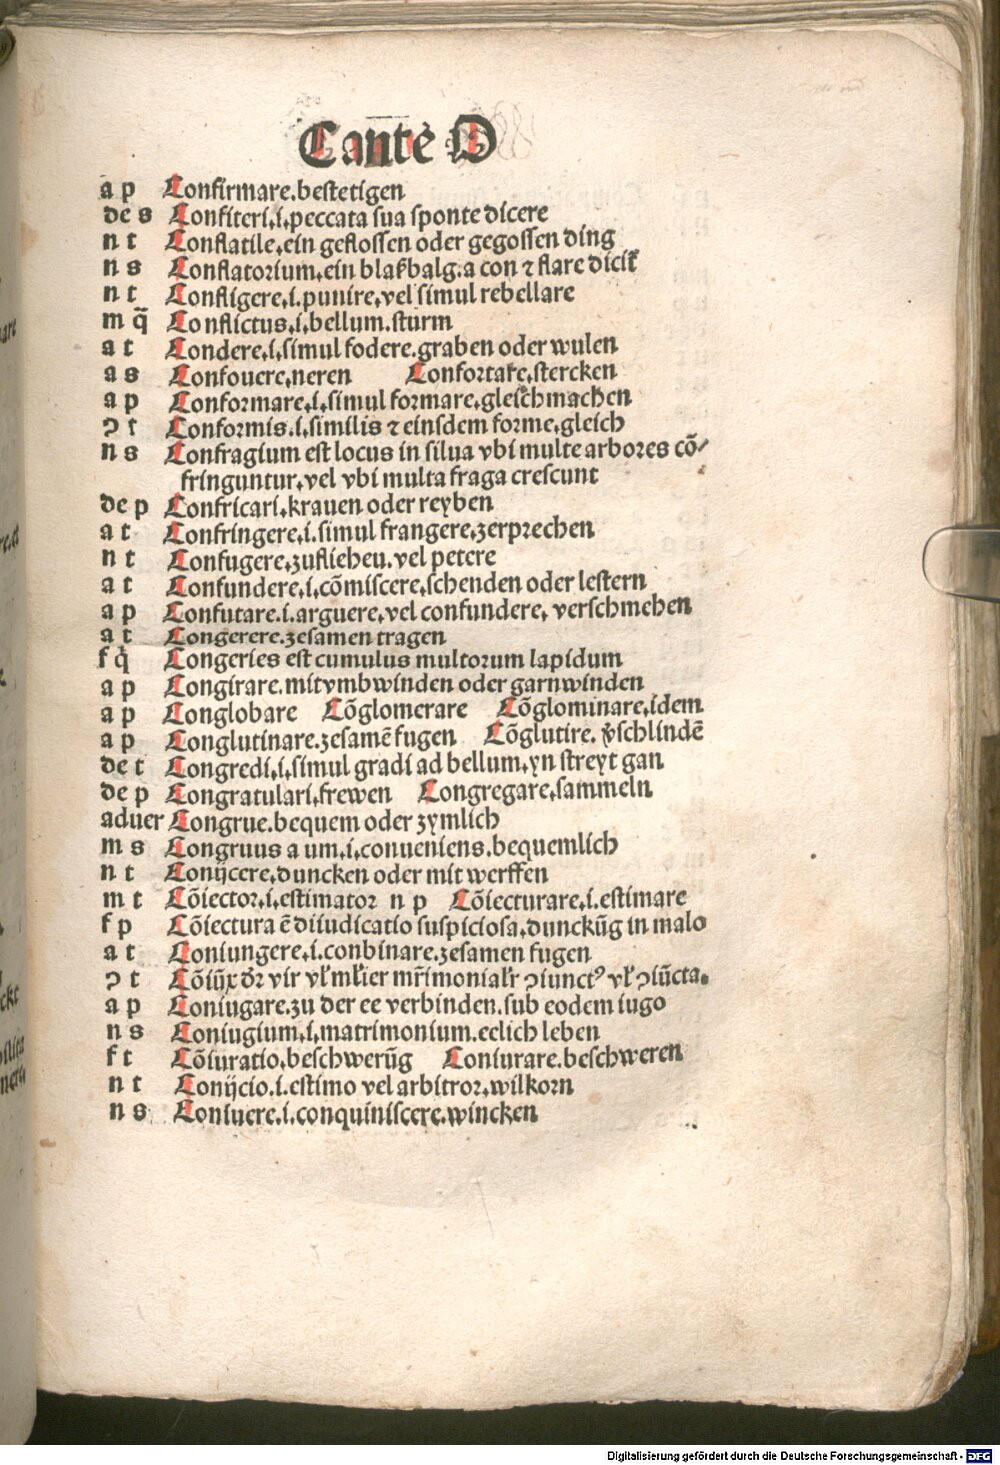 C ante O
a p Confirmare.bestetigen
de s Confiteri.i.peccata sua sponte dicere
n t Conflatile.ein geflossen oder gegossen ding
n s Conflatorium.ein blaßbalg.a con ⁊ flare dicit᷑
n t Confligere.i.punire.vel simul rebellare
m q̄ Conflictus.i.bellum.sturm
a t Confodere.i.simul fodere.graben oder wulen
a s Confouere.neren Confortare.stercken
a p Conformare.i.simul formare.gleichmachen
ꝯ t Conformis.i.similis ⁊ eiusdem forme.gleich
n s Confragium est locus in silua vbi multe arbores cō/
fringuntur.vel vbi multa fraga crescunt
de p Confricari.krauen oder reyben
a t Confringere.i.simul frangere.zerprechen
n t Confugere.zufliehen.vel petere
a t Confundere.i.cōmiscere.schenden oder lestern
a p Confutare.i.arguere.vel confundere. verschmehen
a t Congerere.zesamen tragen
f q̄ Congeries est cumulus multorum lapidum
a p Congirare.mit vmbwinden oder garnwinden
a p Conglobare Cōglomerare Cōglominare.idem
a p Conglutinare.zesamē fugen Cōglutire. v̓schlindē
de t Congredi.i.simul gradi ad bellum.yn streyt gan
de p Congratulari.frewen Congregare.sammeln
aduer Congrue.bequem oder zymlich
m s Congruus a um.i.conueniens.bequemlich
n t Conijcere.duncken oder mit werffen
m t Cōiector.i.estimator n p Cōiecturare.i.estimare
f p Cōiectura ē diiudicatio suspiciosa.dunckūg in malo
a t Coniungere.i.conbinare.zesamen fugen
ꝯ t Cōiūx dr̄ vir vl̓ ml̓ier mr̄imonialr̓ ꝯiunctꝰ vl̓ ꝯiūcta.
a p Coniugare.zu der ee verbinden.sub eodem iugo
n s Coniugium.i.matrimonium.eelich leben
f t Cōiuratio.beschwerūg Coniurare.beschweren
n t Conijcio.i.estimo vel arbitror.wilkorn
n s Coniuere.i.conquiniscere.wincken
Digitalisierung gefördert durch die Deutsche Forschungsgemeinschaft - DFG